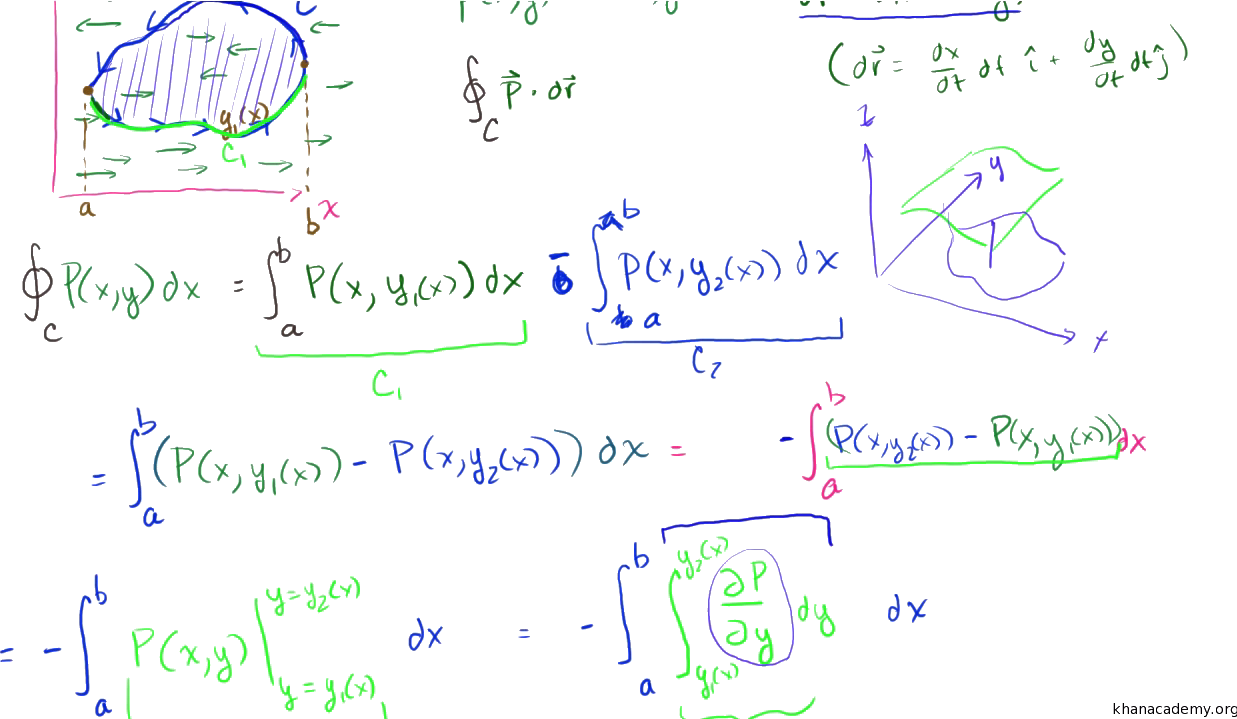 P(x,y)
y
∮_C P⃗ · dr⃗
(dr⃗ = dx/dt dt î + dy/dt dt ĵ)
y₁(x)
C₁
a
b
x
z
y
x
∮_C P(x,y) dx = ∫_a^b P(x, y₁(x)) dx - ∫_a^b P(x, y₂(x)) dx
C₁
C₂
= ∫_a^b (P(x, y₁(x)) - P(x, y₂(x))) dx = - ∫_a^b (P(x, y₂(x)) - P(x, y₁(x))) dx
= - ∫_a^b P(x,y) |_{y = y₁(x)}^{y = y₂(x)} dx = - ∫_a^b ∫_{y₁(x)}^{y₂(x)} ∂P/∂y dy dx
khanacademy.org